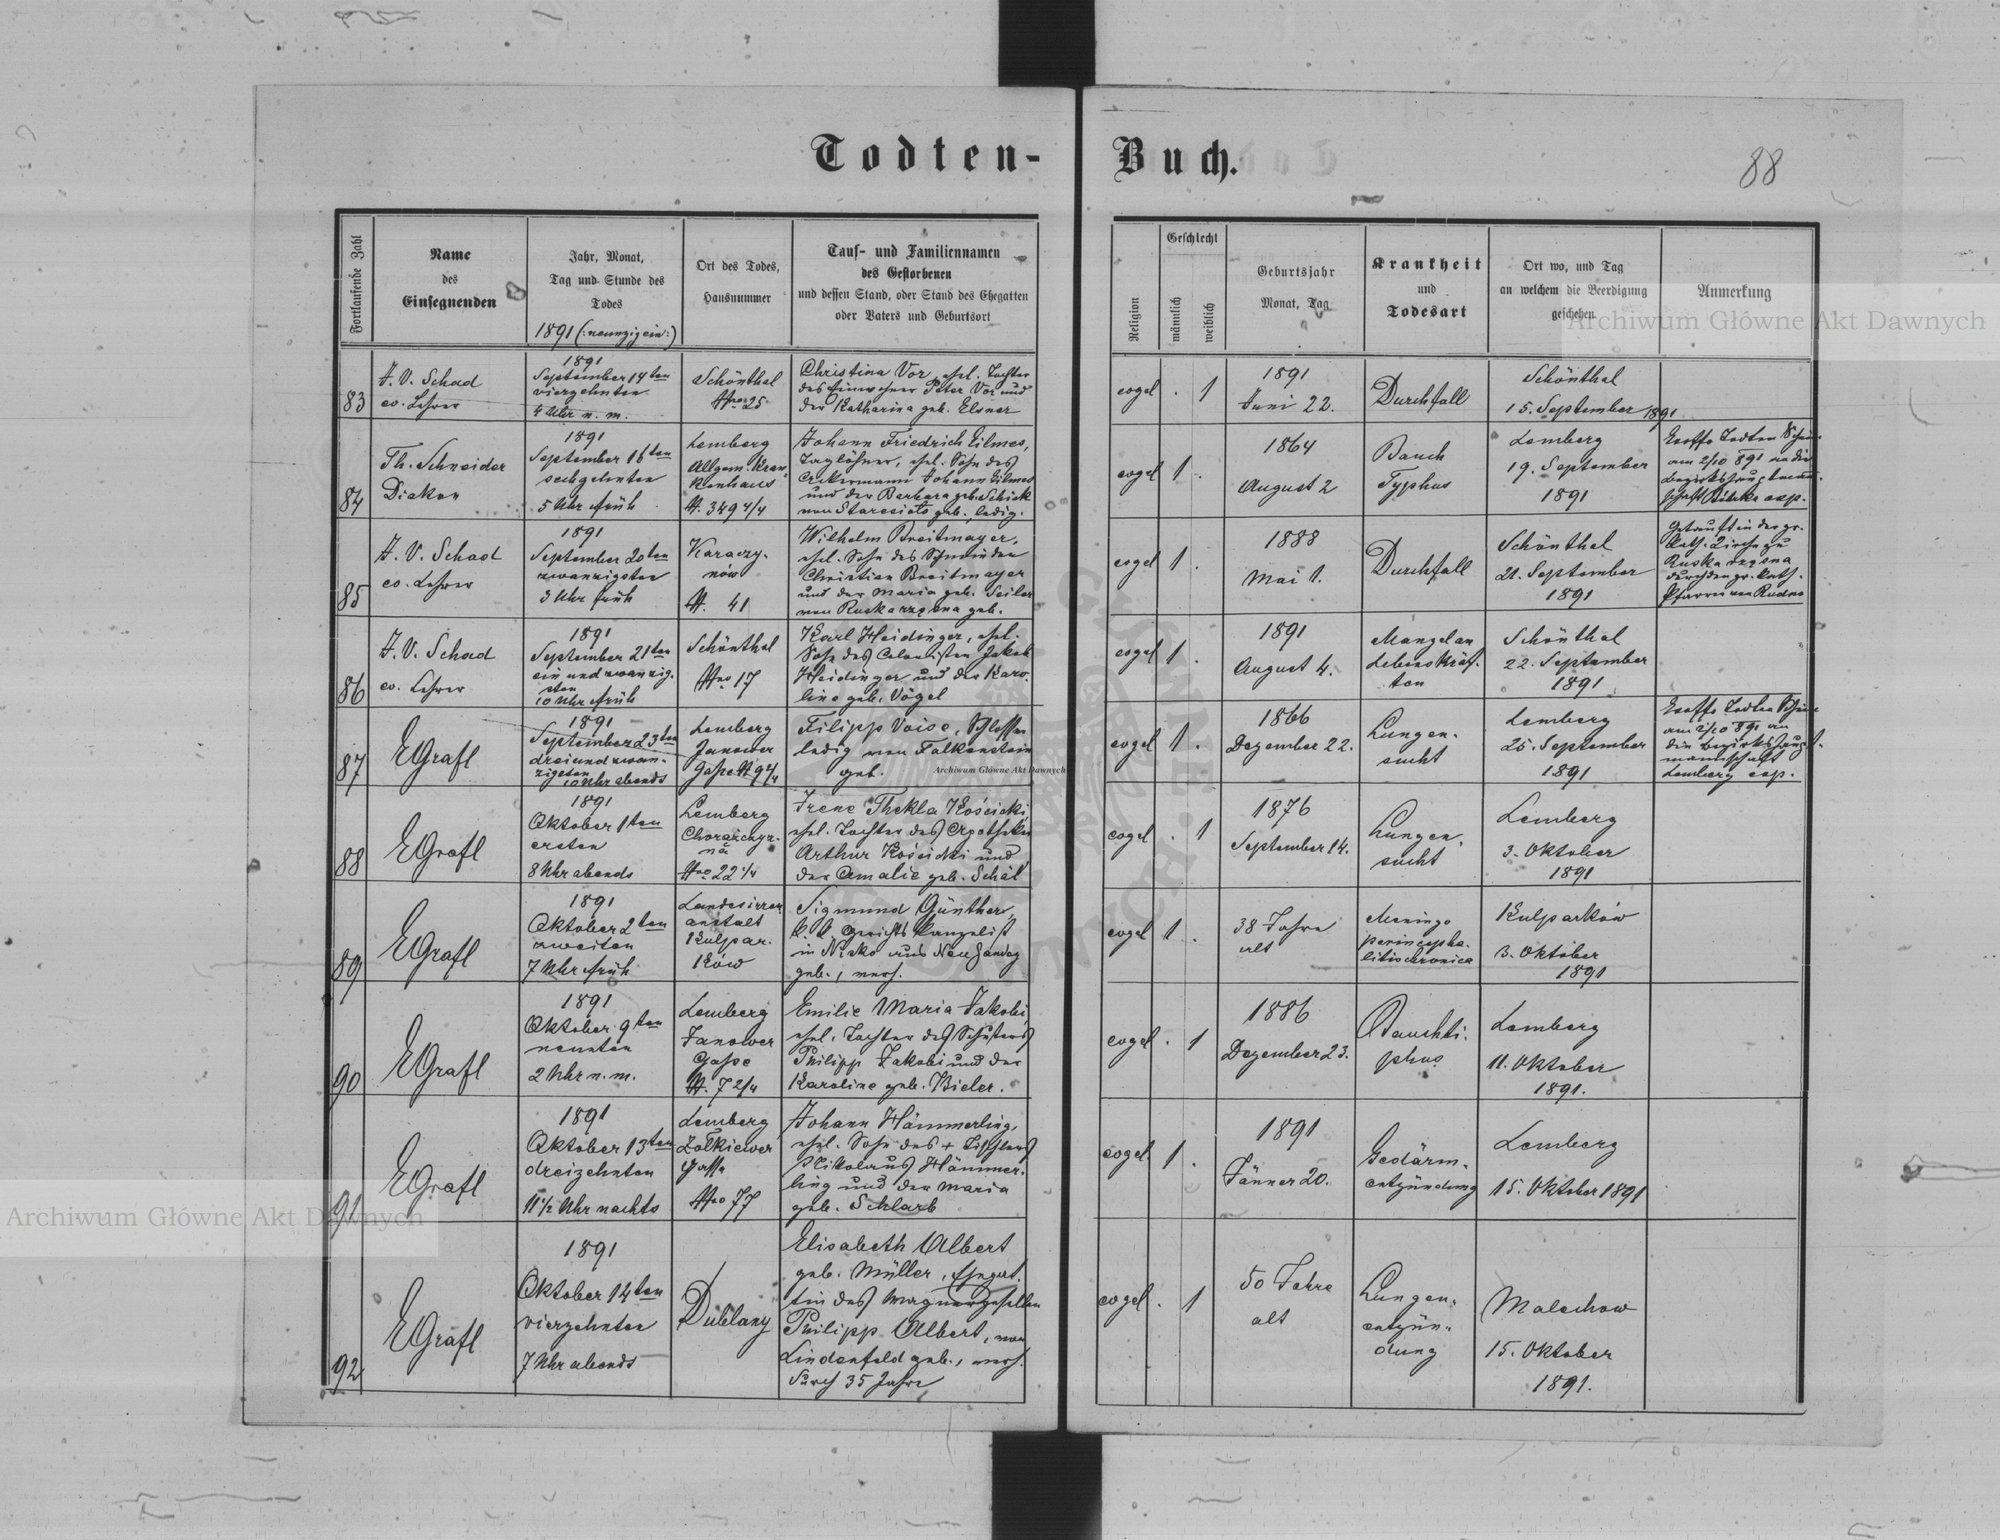 Todten-Buch.
88
Fortlaufende Zahl
Name
des
Einsegnenden
Jahr, Monat,
Tag und Stunde des
Todes
1891 (:neunzigein:)
Ort des Todes,
Hausnummer
Tauf- und Familiennamen
des Gestorbenen
und dessen Stand, oder Stand des Ehegatten
oder Vaters und Geburtsort
Religion
Geschlecht
männlich
weiblich
Geburtsjahr
Monat, Tag
Krankheit
und
Todesart
Ort wo, und Tag
an welchem die Beerdigung
geschehen
Anmerkung
83
J. V. Schad
ev. Lehrer
1891
September 14ten
vierzehnten
4 Uhr n. m.
Schönthal
Nro 25
Christina Vor, ehel. Tochter
des Einwohner Peter Vor und
der Katharina geb. Elsner
evgel
. 1
1891
Juni 22.
Durchfall
Schönthal
15. September 1891
84
Th. Schneider
Diakon
1891
September 16ten
sechzehnten
5 Uhr früh
Lemberg
Allgem. Kran-
kenhaus
N. 349 4/4
Johann Friedrich Eilmes,
Taglöhner, ehel. Sohn des
Ackermann Johann Eilmes
und der Barbara geb. Schick
von geb., ledig.
evgel
1 .
1864
August 2
Bauch
Typhus
Lemberg
19. September
1891
Todten Schein
am 2/10 891 an die
Bezirkshauptmann-
schaft exp.
85
J. V. Schad
ev. Lehrer
1891
September 20ten
zwanzigsten
3 Uhr früh
Karaczy-
nów
N. 41
Wilhelm Breitmayer,
ehel. Sohn des
Christian Breitmayer
und der Maria geb. Seiler
von geb.
evgel
1 .
1888
Mai 1.
Durchfall
Schönthal
21. September
1891
Getauft in der gr.
kath. Kirche zu
Ruska
durch den gr. kath.
Pfarrer von Rudno
86
J. V. Schad
ev. Lehrer
1891
September 21ten
ein und zwanzig-
sten
10 Uhr früh
Schönthal
Nro 17
Karl Heidinger, ehel.
Sohn des Colonisten Jakob
Heidinger und der Karo-
line geb. Vögel
evgel
1 .
1891
August 4.
Mangel an
Lebenskräf-
ten
Schönthal
22. September
1891
87
EGrafl
1891
September 23ten
dreiund zwan-
zigsten
10 Uhr abends
Lemberg
Janower
Gasse N 9 4/4
Filipp Voise, Schlosser
ledig von Falkenstein
geb.
evgel
1 .
1866
Dezember 22.
Lungen-
sucht
Lemberg
25. September
1891
Todten Schein
am 2/10 891 an
die Bezirkshaupt-
mannschaft
Lemberg exp.
88
EGrafl
1891
Oktober 1ten
ersten
8 Uhr abends
Lemberg
na
Nro 22 1/4
Irene Thekla Kościcki,
ehel. Tochter des Apotheker
Arthur Kościcki und
der Amalie geb.
evgel
. 1
1876
September 14.
Lungen-
sucht
Lemberg
3. Oktober
1891
89
EGrafl
1891
Oktober 2ten
zweiten
7 Uhr früh
Landesirren
anstalt
Kulpar-
ków
Sigmund Günther,
k. k. Gerichts Kanzelist
in Nisko aus Neu Sandez
geb., verh.
evgel
1 .
38 Jahre
alt
Meningo
Kulparków
3. Oktober
1891
90
EGrafl
1891
Oktober 9ten
neunten
2 Uhr n. m.
Lemberg
Janower
Gasse
N. 7 2/4
Emilie Maria Jakobi,
ehel. Tochter des Schusters
Philipp Jakobi und der
Karoline geb. Bieler.
evgel
. 1
1886
Dezember 23.
Bauchti-
phus
Lemberg
11. Oktober
1891.
91
EGrafl
1891
Oktober 13ten
dreizehnten
11 1/2 Uhr nachts
Lemberg
Zołkiewer
Gasse
Nro 77
Johann Hämmerling,
ehel. Sohn des + Tischlers
Nikolaus Hämmer-
ling und der Maria
geb. Schlarb
evgel
1 .
1891
Jänner 20.
Gedärm-
entzündung
Lemberg
15. Oktober 1891
92
EGrafl
1891
Oktober 14ten
vierzehnten
7 Uhr abends
Dublany
Elisabeth Albert
geb. Müller, Ehegat-
tin des Wagnergesellen
Philipp Albert, von
Lindenfeld geb., verh.
durch 35 Jahre
evgel
. 1
50 Jahre
alt
Lungen-
entzün-
dung
Malechow
15. Oktober
1891.
Archiwum Główne Akt Dawnych
Archiwum Główne Akt Dawnych
Archiwum Główne Akt Dawnych